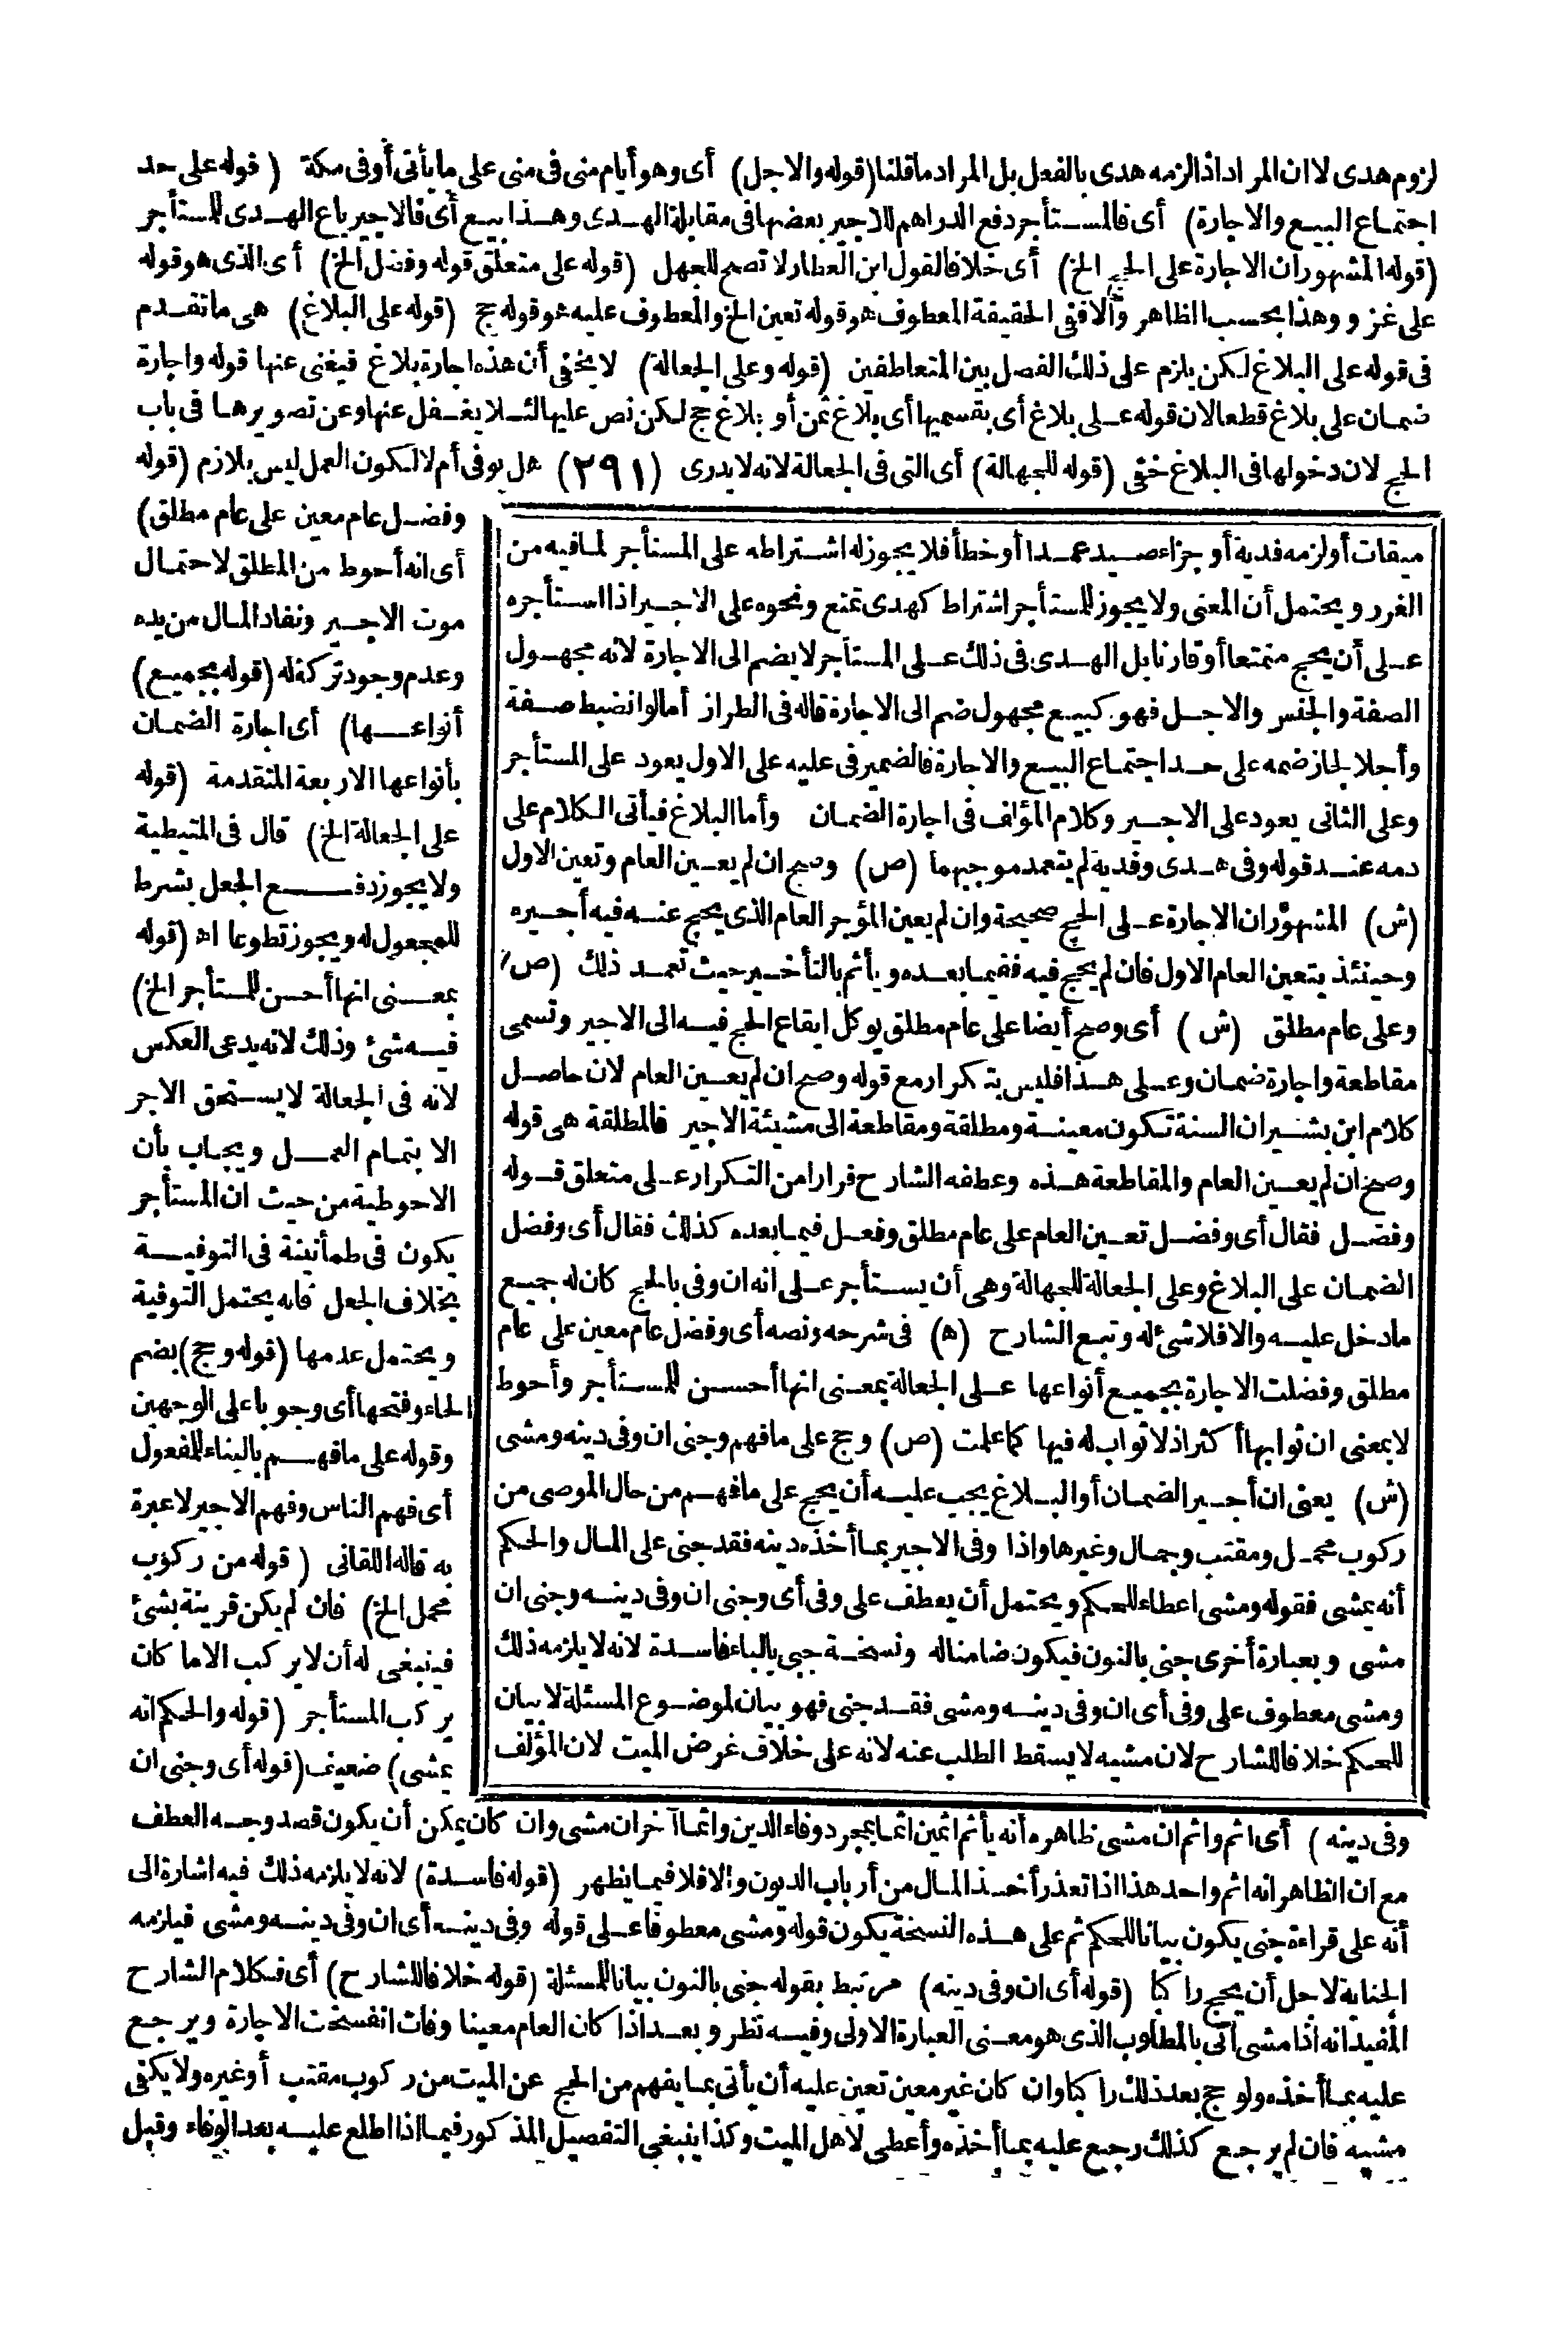 لزوم هدى لا ان المراد اذا لزمه هدى بالفعل بل المراد ما قلنا (قوله والاجل) أى وهو أيام منى فى منى على ما يأتى أو فى مكة (قوله على حد
اجتماع البيع والاجارة) أى فالمستأجر دفع الدراهم للاجير بعضها فى مقابلة الهدى وهذا بيع أى فالاجير باع الهدى للمستأجر
(قوله المشهور ان الاجارة على الحج الخ) أى خلافا لقول ابن العطار لا تصح للجهل (قوله على متعلق قوله وفضل الخ) أى الذى هو قوله
على غزو وهذا بحسب الظاهر والا ففى الحقيقة المعطوف هو قوله تعين الخ والمعطوف عليه هو قوله حج (قوله على البلاغ) هى ما تقدم
فى قوله على البلاغ لكن يلزم على ذلك الفصل بين المتعاطفين (قوله وعلى الجعالة) لا يخفى أن هذه اجارة بلاغ فيغنى عنها قوله واجارة
ضمان على بلاغ قطعا لان قوله على بلاغ أى بقسميها أى بلاغ ثمن أو بلاغ حج لكن نص عليها لئلا يغفل عنها وعن تصويرها فى باب
الحج لان دخولها فى البلاغ خفى (قوله للجهالة) أى التى فى الجعالة لانه لا يدرى (٢٩١) هل يوفى أم لا لكون العمل ليس بلازم (قوله
وفضل عام معين على عام مطلق)
أى انه أحوط من المطلق لاحتمال
موت الاجير ونفاد المال من يده
وعدم وجود تركة له (قوله بجميع
أنواعها) أى اجارة الضمان
بأنواعها الاربعة المتقدمة (قوله
على الجعالة الخ) قال فى المتيطية
ولا يجوز دفع الجعل بشرط
للمجعول له ويجوز تطوعا اه (قوله
بمعنى انها أحسن للمستأجر الخ)
فيه شئ وذلك لانه يدعى العكس
لانه فى الجعالة لا يستحق الاجر
الا بتمام العمل ويجاب بأن
الاحوطية من حيث ان المستأجر
يكون فى طمأنينة فى التوفية
بخلاف الجعل فانه يحتمل التوفية
ويحتمل عدمها (قوله وحج) بضم
الحاء وفتحها أى وجوبا على الوجهين
وقوله على ما فهم بالبناء للمفعول
أى فهم الناس وفهم الاجير لا عبرة
به قاله اللقانى (قوله من ركوب
محمل الخ) فان لم يكن قرينة بشئ
فينبغى له أن لا يركب الا ما كان
يركب المستأجر (قوله والحكم انه
يمشى) ضعيف (قوله أى وجنى ان
ميقات أو لزمه فدية أو جزاء صيد عمدا أو خطأ فلا يجوز له اشتراطه على المستأجر لما فيه من
الغرر ويحتمل أن المعنى ولا يجوز للمستأجر اشتراط كهدى تمتع ونحوه على الاجير اذا استأجره
على أن يحج متمتعا أو قارنا بل الهدى فى ذلك على المستأجر لا يضم الى الاجارة لانه مجهول
الصفة والجنس والاجل فهو كبيع مجهول ضم الى الاجارة قاله فى الطراز أما لو انضبط صفة
وأجلا لجاز ضمه على حد اجتماع البيع والاجارة فالضمير فى عليه على الاول يعود على المستأجر
وعلى الثانى يعود على الاجير وكلام المؤلف فى اجارة الضمان وأما البلاغ فيأتى الكلام على
دمه عند قوله وفى هدى وفدية لم يتعمد موجبهما (ص) وصح ان لم يعين العام وتعين الاول
(ش) المشهور ان الاجارة على الحج صحيحة وان لم يعين المؤجر العام الذى يحج عنه فيه أجيره
وحينئذ يتعين العام الاول فان لم يحج فيه ففيما بعده ويأثم بالتأخير حيث تعمد ذلك (ص)
وعلى عام مطلق (ش) أى وصح أيضا على عام مطلق يوكل ايقاع الحج فيه الى الاجير وتسمى
مقاطعة واجارة ضمان وعلى هذا فليس بتكرار مع قوله وصح ان لم يعين العام لان حاصل
كلام ابن بشير ان السنة تكون معينة ومطلقة ومقاطعة الى مشيئة الاجير فالمطلقة هى قوله
وصح ان لم يعين العام والمقاطعة هذه وعطفه الشارح فرارا من التكرار على متعلق قوله
وفضل فقال أى وفضل تعين العام على عام مطلق وفعل فيما بعده كذلك فقال أى وفضل
الضمان على البلاغ وعلى الجعالة للجهالة وهى أن يستأجر على انه ان وفى بالحج كان له جميع
ما دخل عليه والا فلا شئ له وتبع الشارح (ه) فى شرحه ونصه أى وفضل عام معين على عام
مطلق وفضلت الاجارة بجميع أنواعها على الجعالة بمعنى انها أحسن للمستأجر وأحوط
لا بمعنى ان ثوابها أكثر اذ لا ثواب له فيها كما علمت (ص) وحج على ما فهم وجنى ان وفى دينه ومشى
(ش) يعنى ان أجير الضمان أو البلاغ يجب عليه أن يحج على ما فهم من حال الموصى من
ركوب محمل ومقتب وجمال وغيرها واذا وفى الاجير بما أخذه دينه فقد جنى على المال والحكم
أنه يمشى فقوله ومشى اعطاء للحكم ويحتمل أن يعطف على وفى أى وجنى ان وفى دينه وجنى ان
مشى وبعبارة أخرى جنى بالنون فيكون ضامنا له ونسخة جبى بالباء فاسدة لانه لا يلزمه ذلك
ومشى معطوف على وفى أى ان وفى دينه ومشى فقد جنى فهو بيان لموضوع المسئلة لا بيان
للحكم خلافا للشارح لان مشيه لا يسقط الطلب عنه لانه على خلاف غرض الميت لان المؤلف
وفى دينه) أى اثم واثم ان مشى ظاهره أنه يأثم اثمين اثما بمجرد وفاء الدين واثما آخر ان مشى وان كان يمكن أن يكون قصد وجه العطف
مع ان الظاهر انه اثم واحد هذا اذا تعذر أخذ المال من أرباب الديون والا فلا فيما يظهر (قوله فاسدة) لانه لا يلزمه ذلك فيه اشارة الى
أنه على قراءة جنى يكون بيانا للحكم ثم على هذه النسخة يكون قوله ومشى معطوفا على قوله وفى دينه أى ان وفى دينه ومشى فيلزمه
الجناية لاجل أن يحج راكبا (قوله أى ان وفى دينه) مرتبط بقوله جنى بالنون بيانا للمسئلة (قوله خلافا للشارح) أى فكلام الشارح
المفيد انه اذا مشى أتى بالمطلوب الذى هو معنى العبارة الاولى وفيه نظر وبعد اذا كان العام معينا وفات انفسخت الاجارة ويرجع
عليه بما أخذه ولو حج بعد ذلك راكبا وان كان غير معين تعين عليه أن يأتى بما يفهم من الحج عن الميت من ركوب مقتب أو غيره ولا يكفى
مشيه فان لم يرجع كذلك رجع عليه بما أخذه وأعطى لاهل الميت وكذا ينبغى التفصيل المذكور فيما اذا اطلع عليه بعد الوفاء وقبل